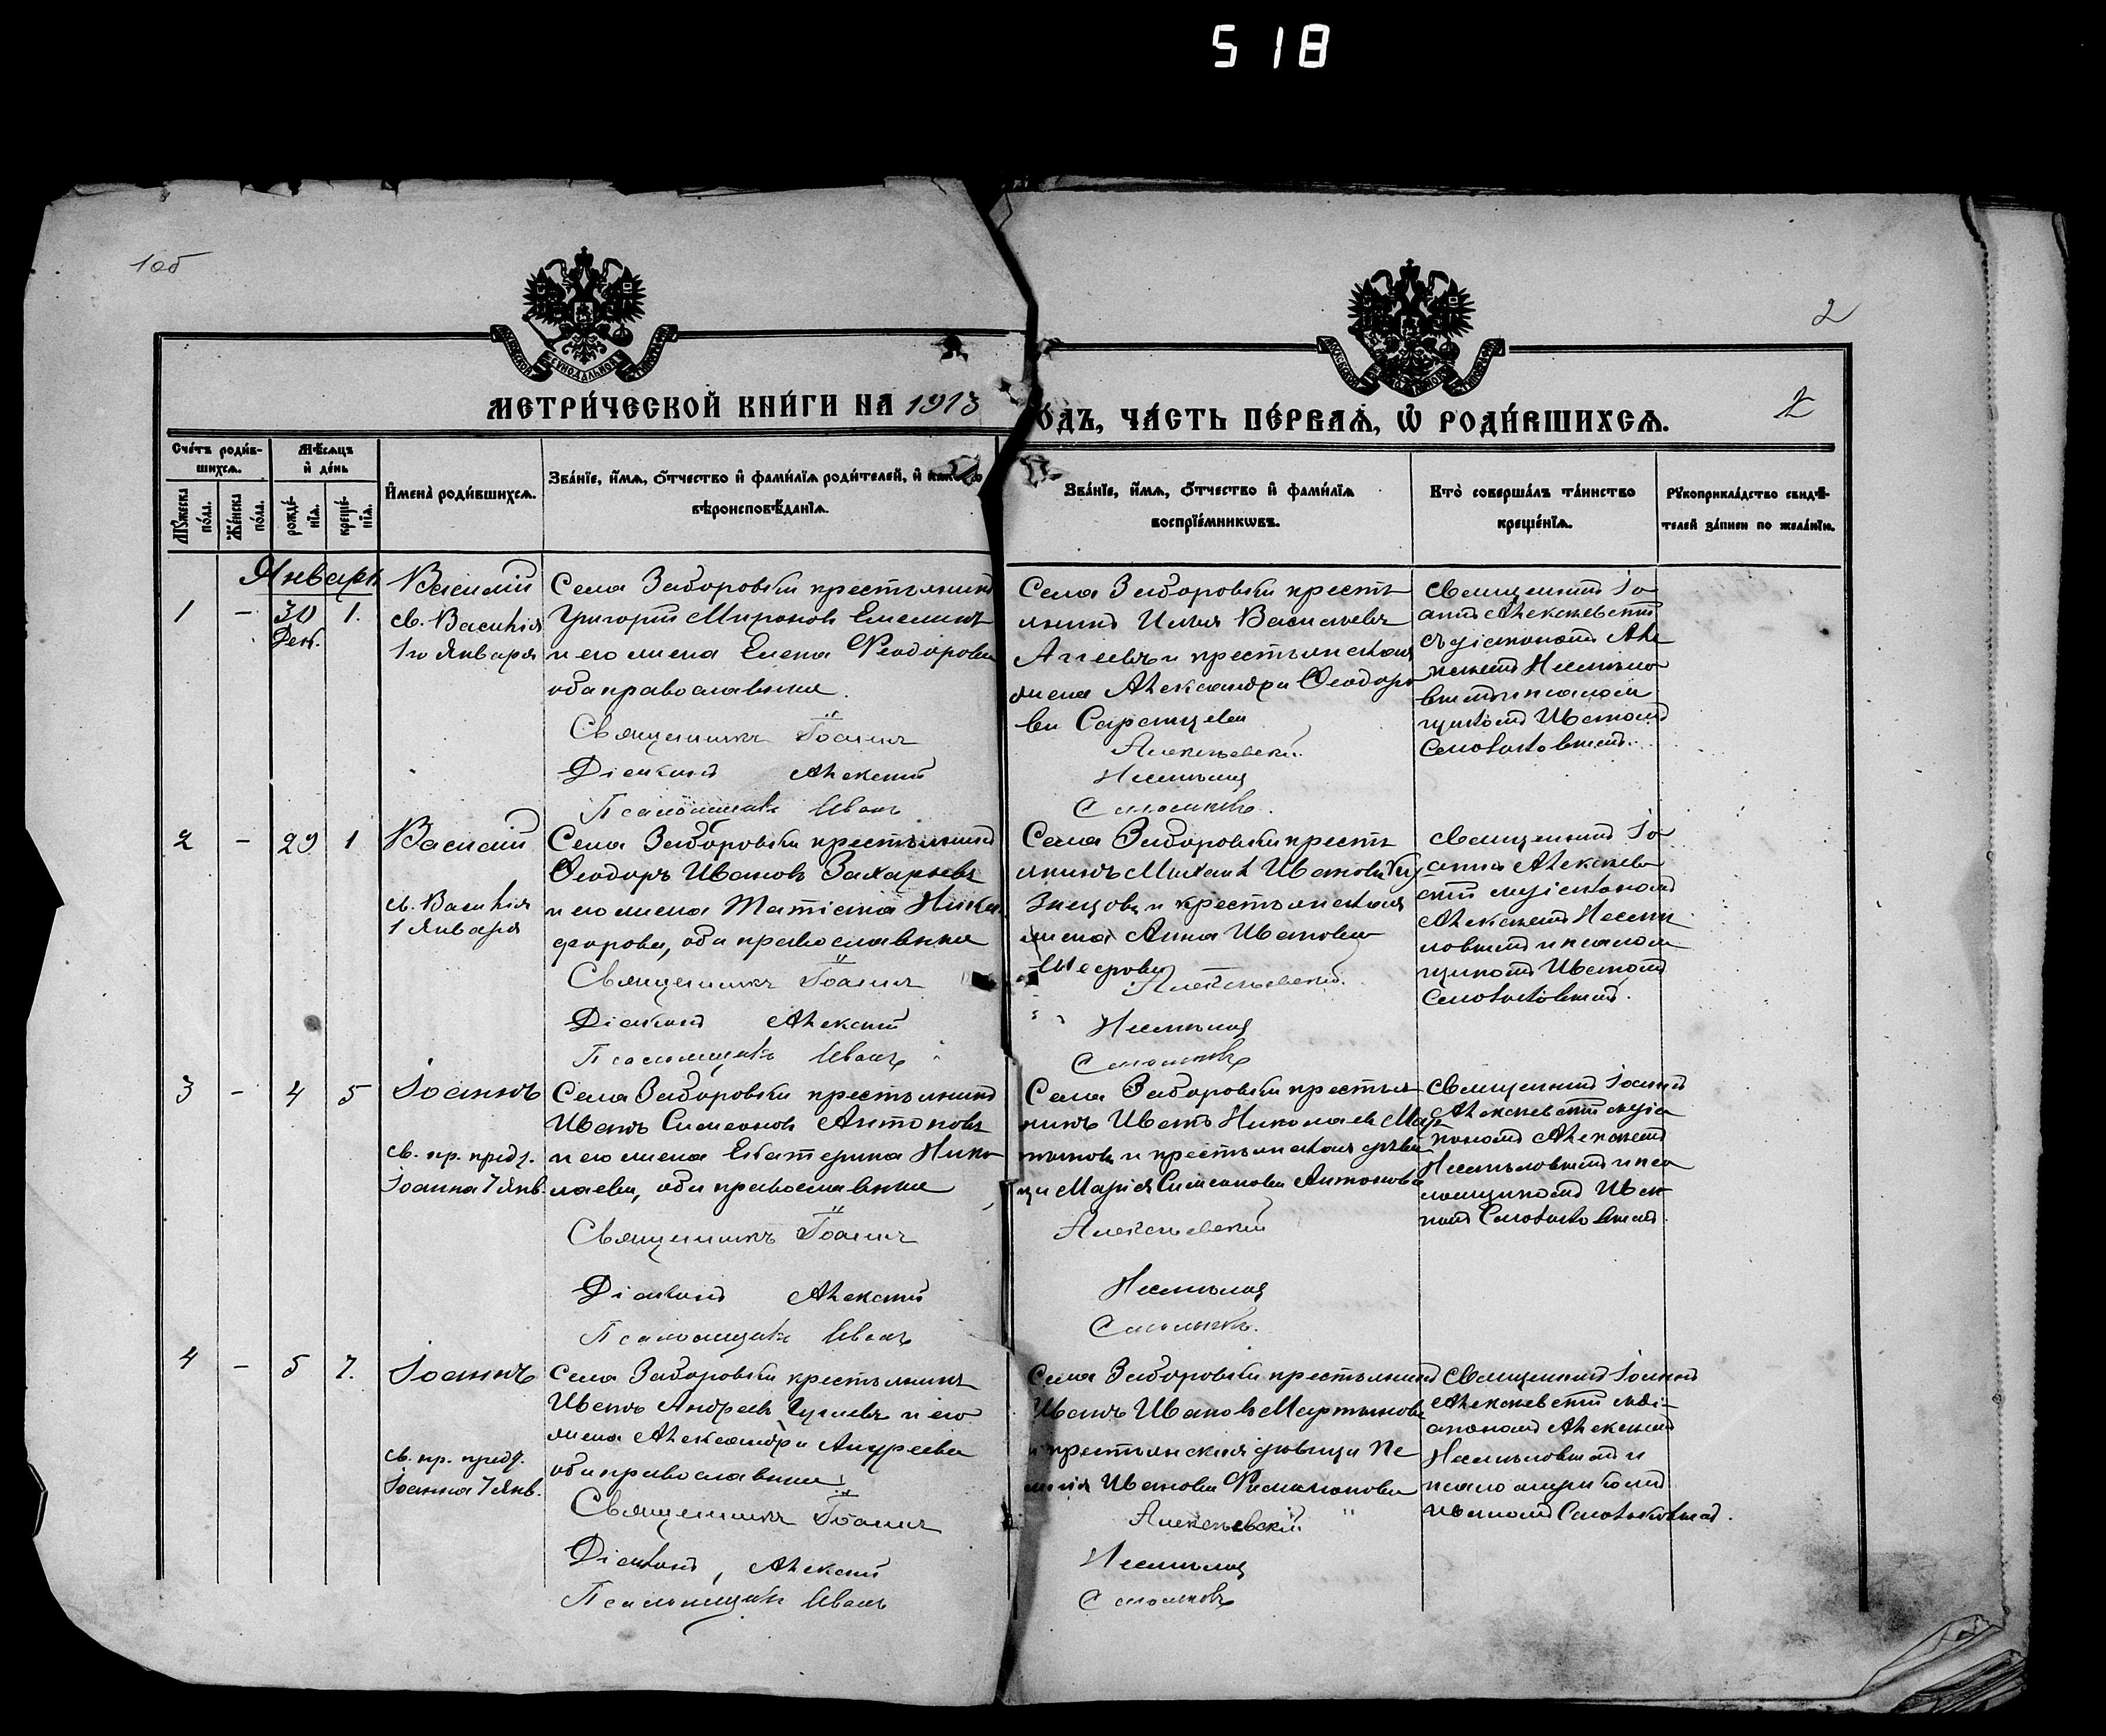 518
1об
2
МЕТРИ́ЧЕСКОЙ КНИ́ГИ НА 1913
О́ДЪ, ЧА́СТЬ ПЕ́РВАѦ, Ѿ РОДИ́ВШИХСѦ.
2
Сче́тъ роди́в-
шихсѧ.
Мѣ́сѧцъ
и де́нь
Мꙋ́жеска
по́ла.
Же́нска
по́ла.
рожде́-
нїѧ.
креще́-
нїѧ.
Имена̀ роди́вшихсѧ.
Зва́нїе, и́мѧ, ѻ́тчество и фами́лїѧ роди́телей, и
вѣроисповѣ́данїѧ.
Зва́нїе, и́мѧ, ѻ́тчество и фами́лїѧ
воспрїе́мникѡвъ.
Кто̀ соверша́лъ та́инство
креще́нїѧ.
Рꙋкоприкла́дство свидѣ́-
телей за́писи по жела́нїю.
Январь
1 - 30 1.
Дек.
Василій
св. Василія
1го Января
Села Заборовки крестьянинъ
Григорій Миронов Емелинъ
и его жена Елена Феодорова
оба православные.
Священникъ Іоаннъ
Діаконъ Алексій
Псаломщикъ Иванъ
Села Заборовки кресть
янинъ Илья Васильевъ
Агеевъ и крестьянская
жена Александра Феодоро
ва
Алексѣевскій
Несмѣлов
Священникъ Іо
аннъ Алексѣевскій
съ діакономъ Але
ксѣемъ Несмѣло
вымъ и псалом
щикомъ Иваномъ
2 - 29 1
Василій
св. Василія
1 Января
Села Заборовки крестьянинъ
Феодоръ Ивановъ Захарьевъ
и его жена Татіана Ники
форова, оба православные
Священникъ Іоаннъ
Діаконъ Алексій
Псаломщикъ Иванъ
Села Заборовки кресть
янинъ Михаил Ивановъ Ку
знецовъ и крестьянская
жена Анна Иванова
Алексѣевскій
Несмѣлов
Священникъ Іо
аннъ Алексѣев
скій съ діакономъ
Алексѣемъ Несмѣ
ловымъ и псалом
щикомъ Иваномъ
3 - 4 5
Іоаннъ
св. пр. предт.
Іоанна 7 Янв.
Села Заборовки крестьянинъ
Иванъ Симеонов Антоновъ
и его жена Екатерина Нико
лаева, оба православные
Священникъ Іоаннъ
Діаконъ Алексій
Псаломщикъ Иванъ
Села Заборовки крестья
нинъ Иванъ Николаев Мар
тыновъ и крестьянская дѣви
ца Марія Симеонова Антонова
Алексѣевскій
Несмѣлов
Священникъ Іоаннъ
Алексѣевскій съ діа
кономъ Алексѣемъ
Несмѣловымъ и пса
ломщикомъ Ива
номъ
4 - 5 7.
Іоаннъ
св. пр. предт.
Іоанна 7 Янв.
Села Заборовки крестьянинъ
Иванъ Андреев и его
жена Александра Андреева
оба православные
Священникъ Іоаннъ
Діаконъ, Алексій
Псаломщикъ Иванъ
Села Заборовки крестьянинъ
Иванъ Иванов Мартыновъ
и крестьянская дѣвица Пе
лагія Иванова Филимонова
Алексѣевскій
Несмѣлов
Священникъ Іоаннъ
Алексѣевскій съ ді-
акономъ Алексѣемъ
Несмѣловымъ и
псаломщикомъ
Иваномъ